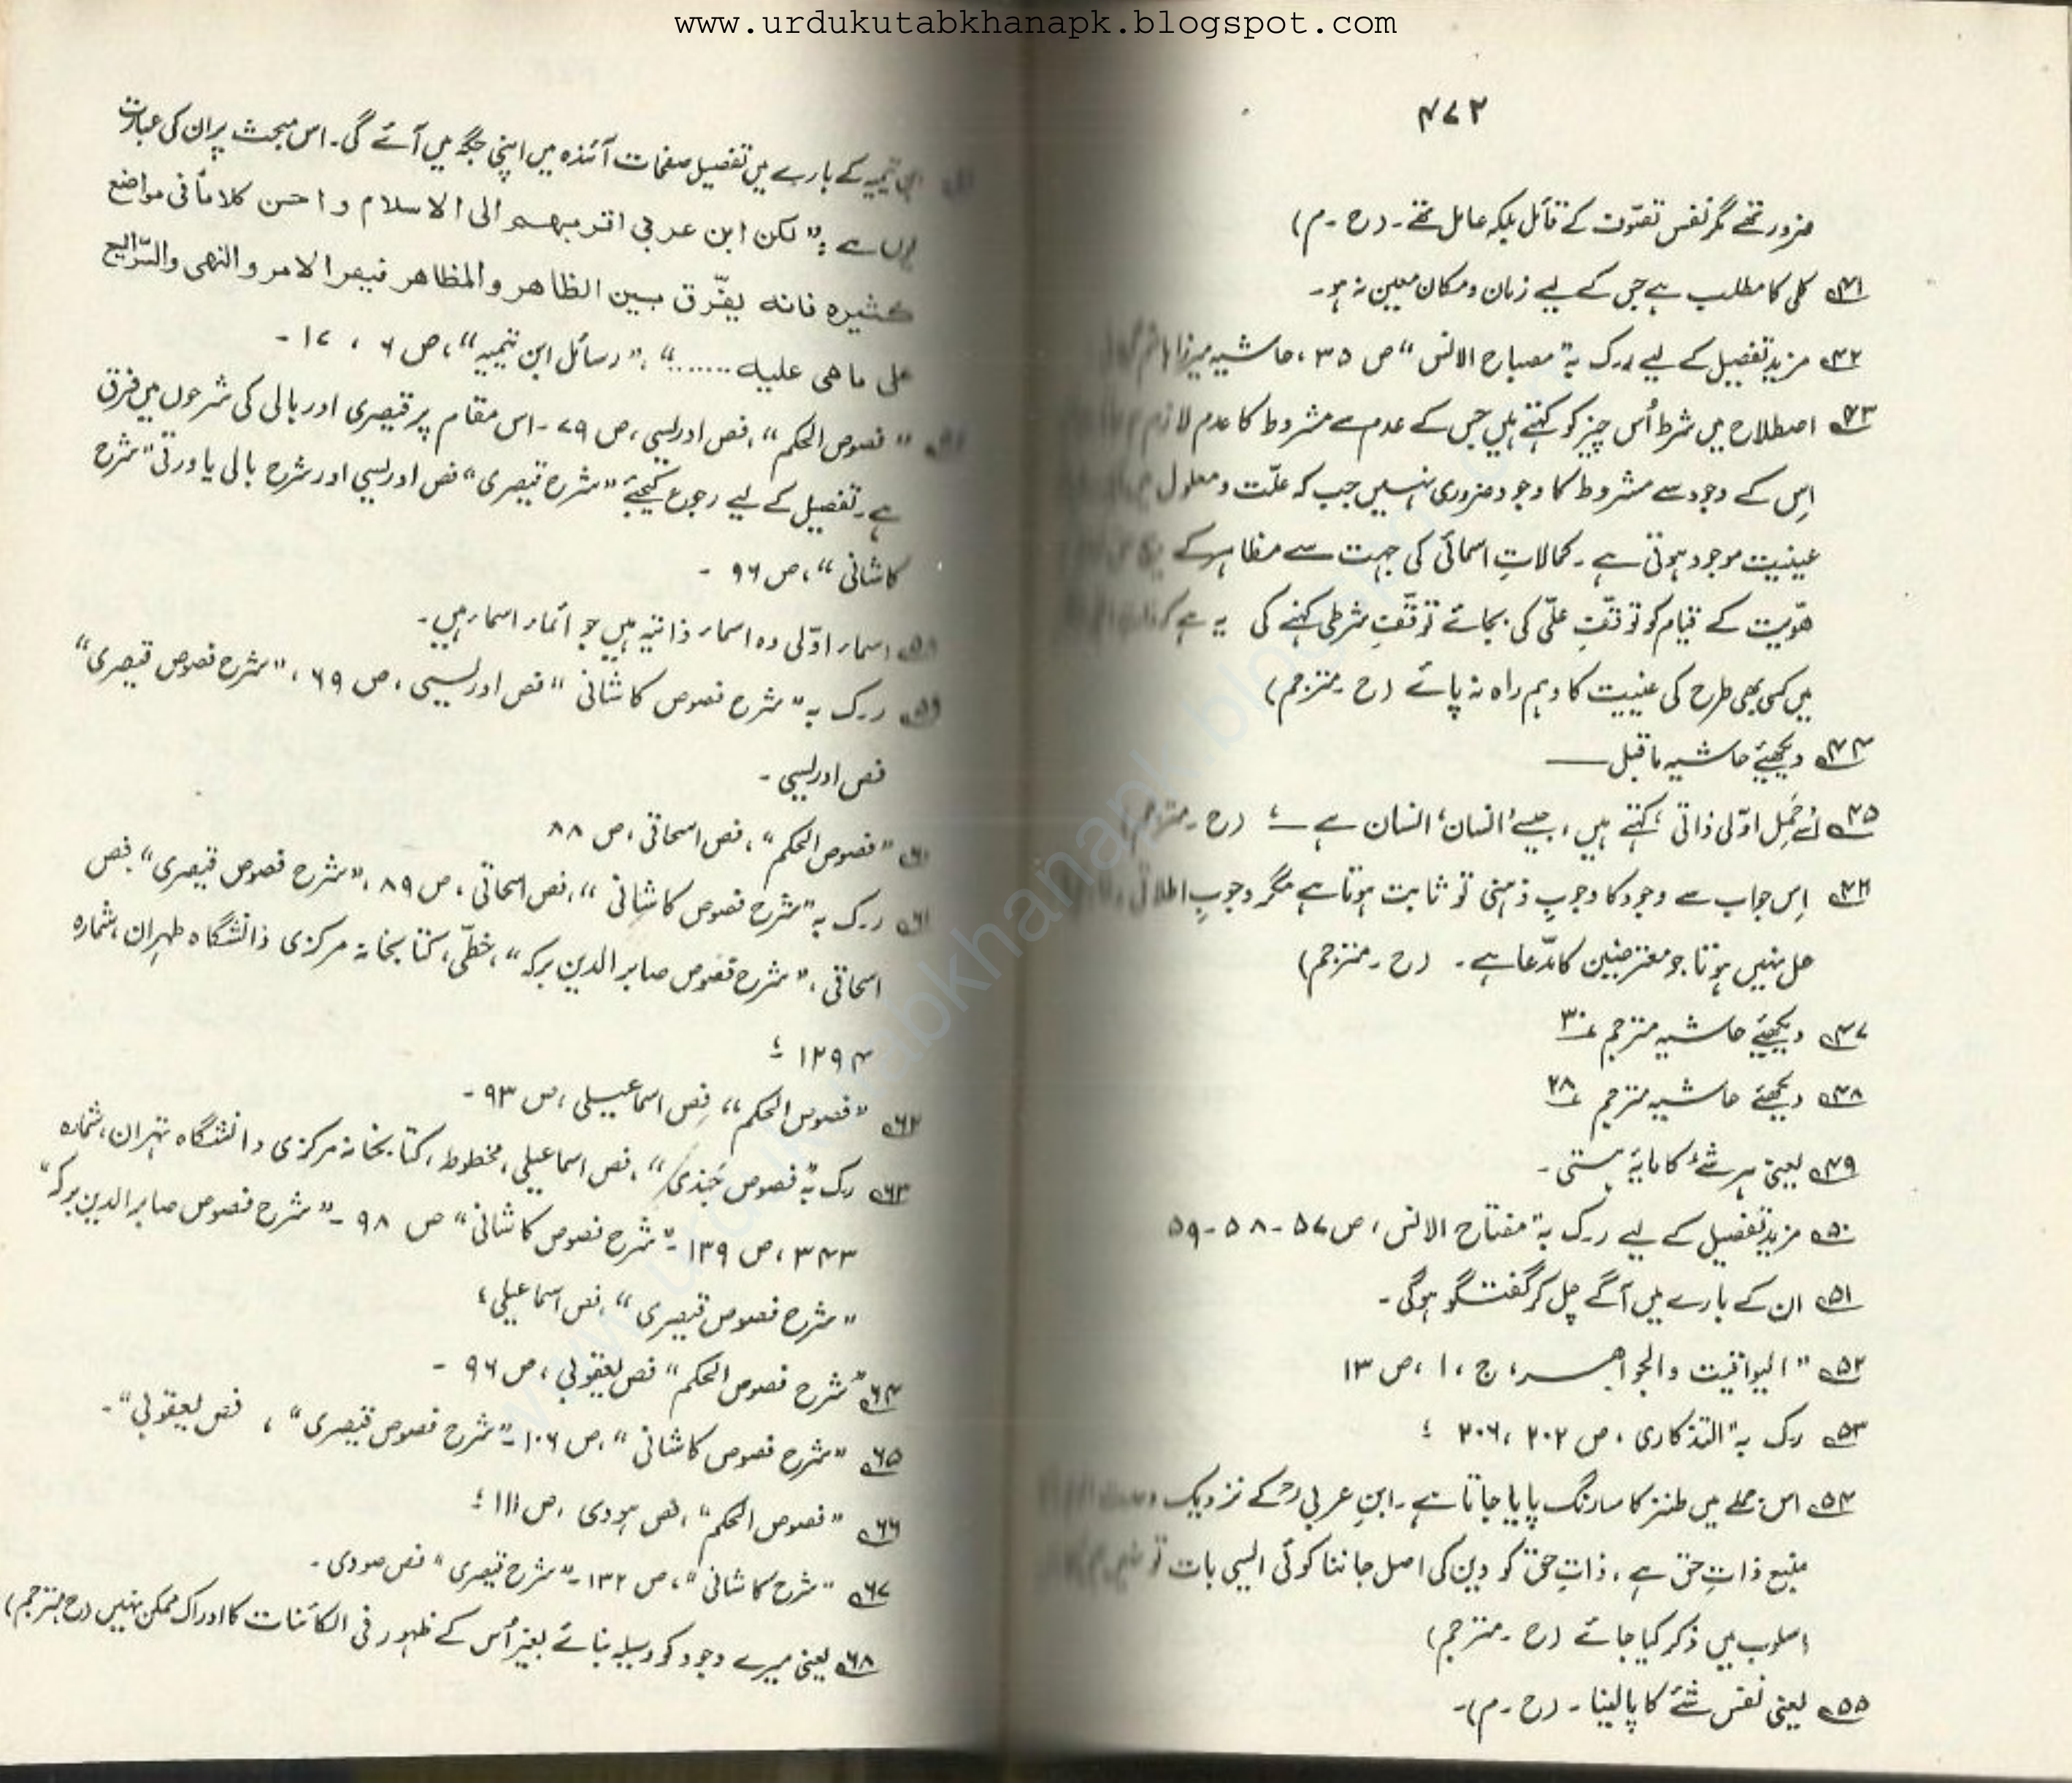 www.urdukutabkhanapk.blogspot.com
۴۷۲
ضرور تھے مگر نفس تصوّف کے قائل بلکہ عامل تھے۔ (ح ۔ م)
۴۱ کلی کا مطلب ہے جس کے لیے زمان و مکان معین نہ ہو۔
۴۲ مزید تفصیل کے لیے رک بہ "مصباح الانس" ص ۳۵، حاشیہ میرزا ہاشم
۴۳ اصطلاح میں شرط اُس چیز کو کہتے ہیں جس کے عدم سے مشروط کا عدم لازم
اِس کے وجود سے مشروط کا وجود ضروری نہیں جب کہ علّت و معلول میں
عینیت موجود ہوتی ہے۔ کمالاتِ اسمائی کی جہت سے مظاہر کے
ھوّیت کے قیام کو توقّفِ علّی کی بجائے توقّفِ شرطی کہنے کی یہ ہے کہ
میں کسی بھی طرح کی عینیت کا وہم راہ نہ پائے (ح ۔ مترجم)
۴۴ دیکھئے حاشیہ ماقبل —
۴۵ اسے حَملِ اوّلی ذاتی، کہتے ہیں، جیسے 'انسان' انسان ہے —؛ (ح ۔ مترجم)
۴۶ اِس جواب سے وجود کا وجوبِ ذہنی تو ثابت ہوتا ہے مگر وجوبِ اطلاقی
حل نہیں ہوتا جو معترضین کا مدّعا ہے۔ (ح ۔ مترجم)
۴۷ دیکھئے حاشیہ مترجم ۳۰
۴۸ دیکھئے حاشیہ مترجم ۲۸
۴۹ یعنی ہر شۓ کا مایۂ ہستی۔
۵۰ مزید تفصیل کے لیے رک بہ "مفتاح الانس، ص ۵۷ - ۵۸ - ۵۹
۵۱ ان کے بارے میں آگے چل کر گفتگو ہوگی۔
۵۲ "الیواقیت والجواہر، ج، ۱، ص ۱۳
۵۳ رک بہ "التذکاری، ص ۲۰۲، ۲۰۶ ؛
۵۴ اس جملے میں طنز کا سا رنگ پایا جاتا ہے۔ ابنِ عربیؒ کے نزدیک
منبع ذاتِ حق ہے، ذاتِ حق کو دین کی اصل جاننا کوئی ایسی بات تو نہیں
اسلوب میں ذکر کیا جائے (ح ۔ مترجم)
۵۵ یعنی نفس شۓ کا پالینا۔ (ح ۔ م)۔
ابن تیمیہ کے بارے میں تفصیل صفحات آئندہ میں اپنی جگہ میں آئے گی۔ اس مبحث پر ان کی عبارت
یوں ہے: "لکن ابن عربی اقربھم الی الاسلام و احسن کلاماً فی مواضع
کثیرہ فانہ یفّرق بین الظاھر والمظاھر فیقر الامر والنھی والشرائع
علی ما ھی علیہ ......."، "رسائل ابن تیمیہ"، ص ۶، ۱۷ -
"فصوص الحکم"، فص ادریسی، ص ۷۹ - اس مقام پر قیصری اور بالی کی شرحوں میں فرق
ہے۔ تفصیل کے لیے رجوع کیجئے "شرح قیصری" فص ادریسی اور شرح بالی پاورقی "شرح
کاشانی"، ص ۹۶ -
۵۸ اسماء اوّلی وہ اسماء ذاتیہ ہیں جو ائماء اسماء ہیں۔
۵۹ ر۔ک بہ "شرح فصوص کاشانی" فص ادریسی، ص ۶۹، "شرح فصوص قیصری"
فص ادریسی۔
۶۰ "فصوص الحکم"، فص اسحاقی، ص ۸۸
۶۱ ر۔ک بہ "شرح فصوص کاشانی"، فص اسحاقی، ص ۸۹، "شرح فصوص قیصری" فص
اسحاقی، "شرح فصوص صابر الدین برکہ"، خطّی، کتابخانہ مرکزی ذانشگاہ طہران، شمارہ
۱۲۹۴ ؛
۶۲ "فصوص الحکم"، فص اسماعیلی، ص ۹۳ -
۶۳ رک بہ "فصوص جَندی"، فص اسماعیلی، مخطوط، کتابخانہ مرکزی دانشگاہ تہران، شمارہ
۳۴۳، ص ۱۳۹ - "شرح فصوص کاشانی" ص ۹۸ - "شرح فصوص صابر الدین برکہ"
"شرح فصوص قیصری"، فص اسماعیلی؛
۶۴ "شرح فصوص الحکم" فص یعقوبی، ص ۹۶ -
۶۵ "شرح فصوص کاشانی"، ص ۱۰۶ - "شرح فصوص قیصری"، فص یعقوبی"۔
۶۶ "فصوص الحکم"، فص ہودی، ص ۱۱۱ ؛
۶۷ "شرح کاشانی"، ص ۱۳۲ - "شرح قیصری" فص ھودی۔
۶۸ یعنی میرے وجود کو وسیلہ بنائے بغیر اُس کے ظہور فی الکائنات کا ادراک ممکن نہیں (ح ۔ مترجم)